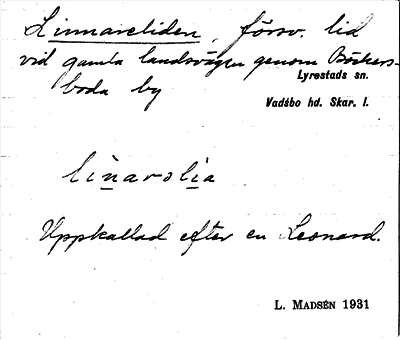 Linnareliden, försv. lid
vid gamla landsvägen genom Böckers-
boda by
Lyrestads sn.
Vadsbo hd. Skar. l.
linarolia
Uppkallad efter en Leonard.
L. MADSÉN 1931